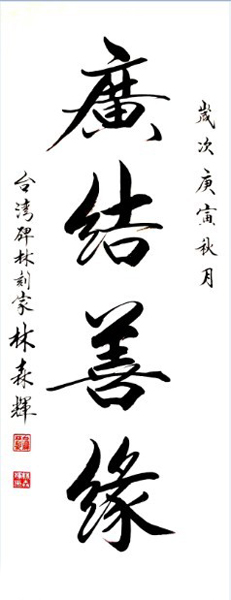 歲次庚寅秋月
廣結善緣
台湾碑林刻家林森輝